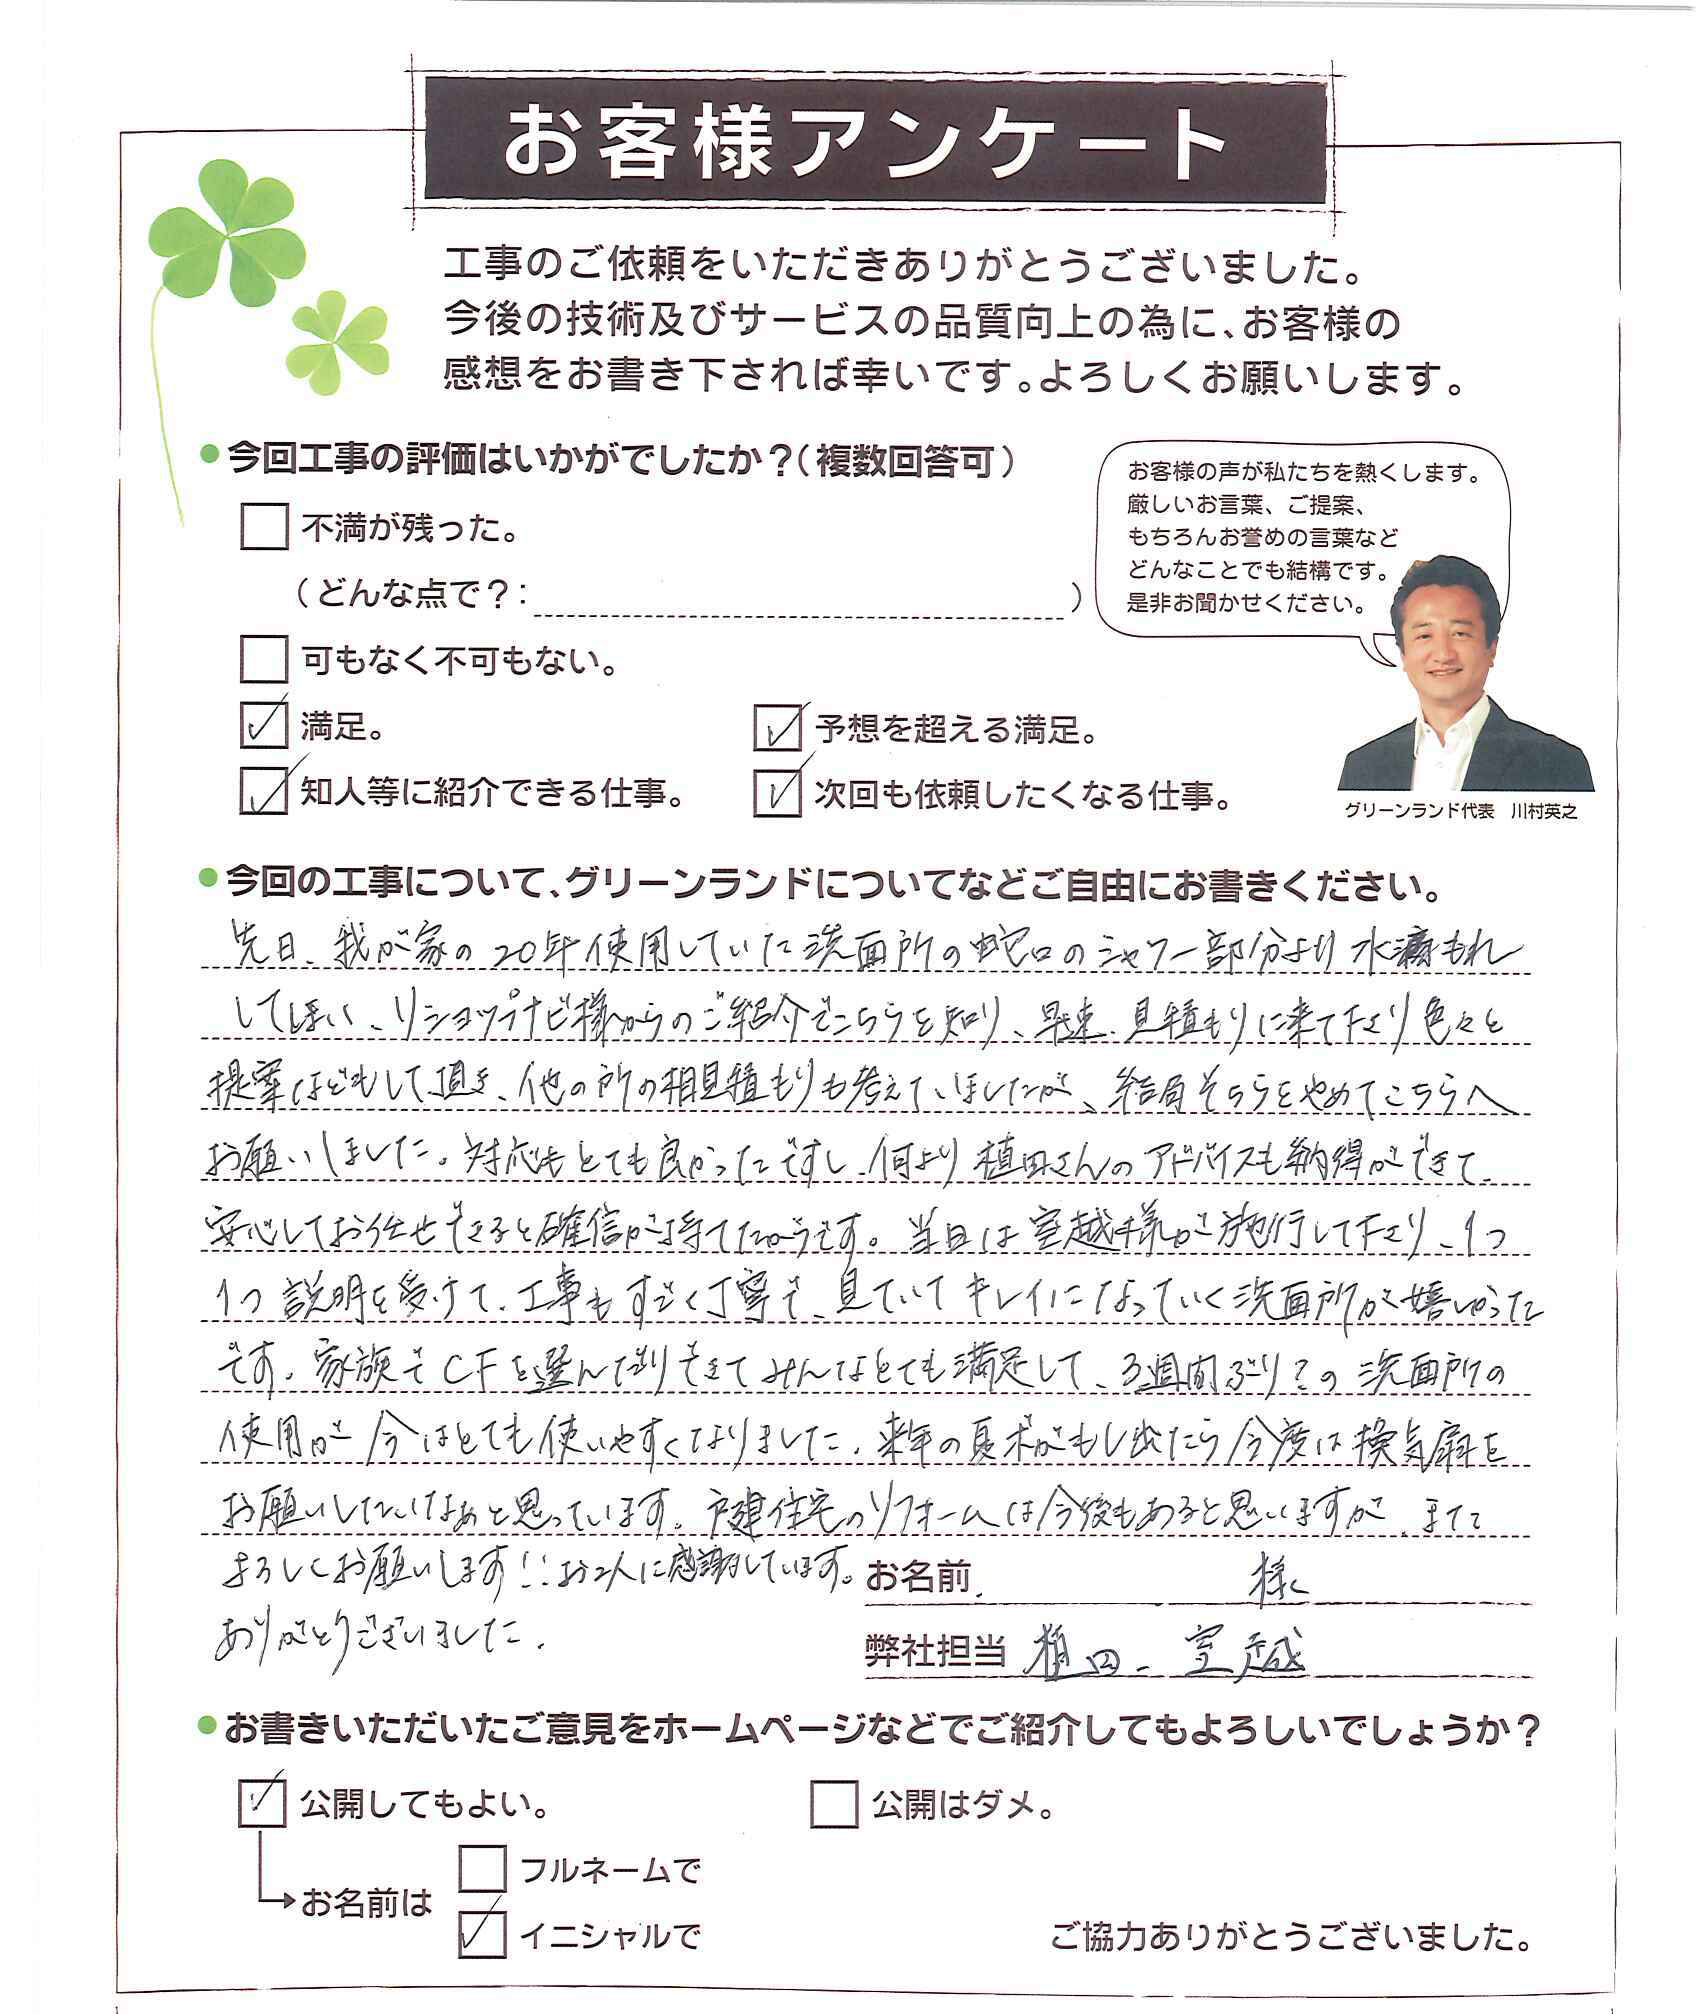 お客様アンケート
工事のご依頼をいただきありがとうございました。
今後の技術及びサービスの品質向上の為に、お客様の
感想をお書き下されば幸いです。よろしくお願いします。
●今回工事の評価はいかがでしたか？（複数回答可）
不満が残った。
（どんな点で？：　　　）
可もなく不可もない。
満足。
予想を超える満足。
知人等に紹介できる仕事。
次回も依頼したくなる仕事。
お客様の声が私たちを熱くします。
厳しいお言葉、ご提案、
もちろんお誉めの言葉など
どんなことでも結構です。
是非お聞かせください。
グリーンランド代表　川村英之
●今回の工事について、グリーンランドについてなどご自由にお書きください。
先日、我が家の20年使用していた洗面所の蛇口のシャワー部分より水漏もれ
してしまい、リショップナビ様からのご紹介でこちらを知り、早速、見積もりに来て下さり色々と
提案などもして頂き、他の所の相見積もりも考えていましたが、結局そちらをやめてこちらへ
お願いしました。対応もとても良かったですし、何より植田さんのアドバイスも納得ができて、
安心してお任せできると確信が持てたからです。当日は室越様が施行して下さり、1つ
1つ説明を受けて、工事もすごく丁寧で、見ていてキレイになっていく洗面所が嬉しかった
です。家族でCFを選んだりできてみんなとても満足して、3週間ぶり？の洗面所の
使用が今はとても使いやすくなりました。来年の夏ボがもし出たら今度は換気扇を
お願いしたいなぁと思っています。戸建住宅のリフォームは今後もあると思いますが、また
よろしくお願いします!!お2人に感謝しています。
ありがとうございました。
お名前　様
弊社担当　植田、室越
●お書きいただいたご意見をホームページなどでご紹介してもよろしいでしょうか？
公開してもよい。
公開はダメ。
お名前は
フルネームで
イニシャルで
ご協力ありがとうございました。